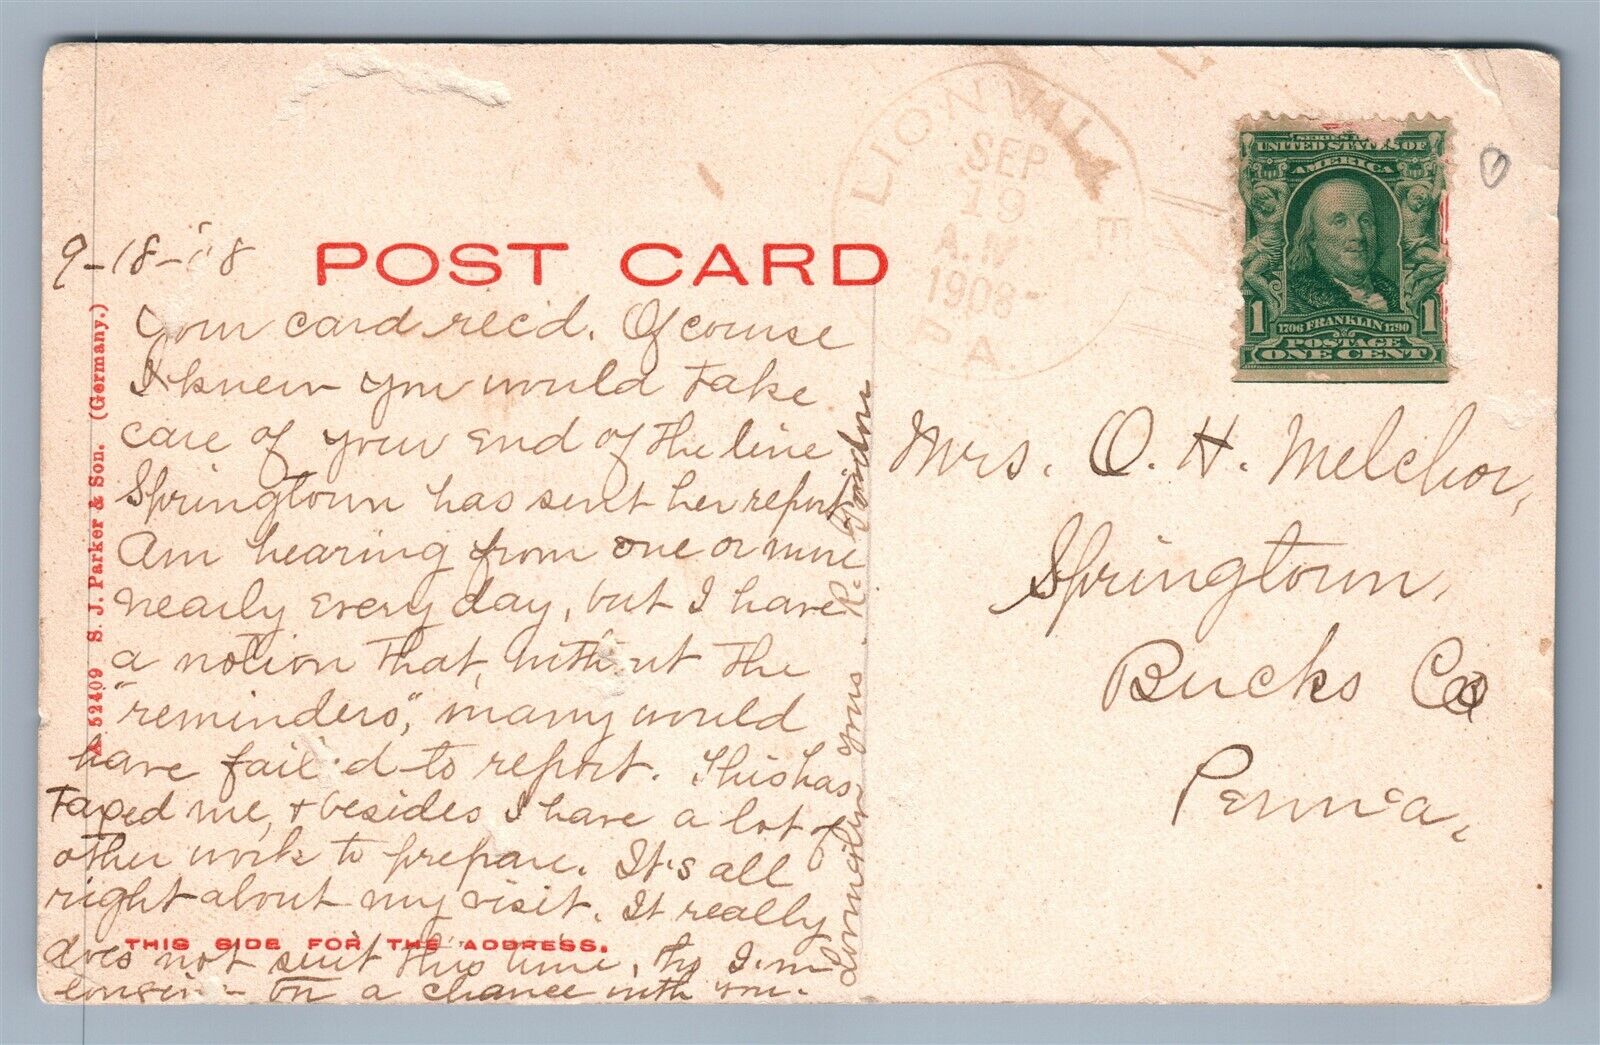 LIONVILLE
SEP
19
A.M
1908
PA.
SERIES 1902
UNITED STATES OF
AMERICA
1 1706 FRANKLIN 1790 1
POSTAGE
ONE CENT
9-18-'08
POST CARD
Your card rec'd. Of course
I knew you would take
care of your end of the line
Springtown has sent her report
Am hearing from one or more
nearly every day, but I have
a notion that, without the
"reminders," many would
have fail'd to report. This has
taxed me, & besides I have a lot of
other work to prepare. It's all
right about my visit. It really
THIS SIDE FOR THE ADDRESS.
does not suit this time, tho I'm
on a chance with you.
yours. R.
A 52409 S. J. Parker & Son. (Germany.)
Mrs. O. H. Melchor,
Springtown,
Bucks Co
Penn'a.